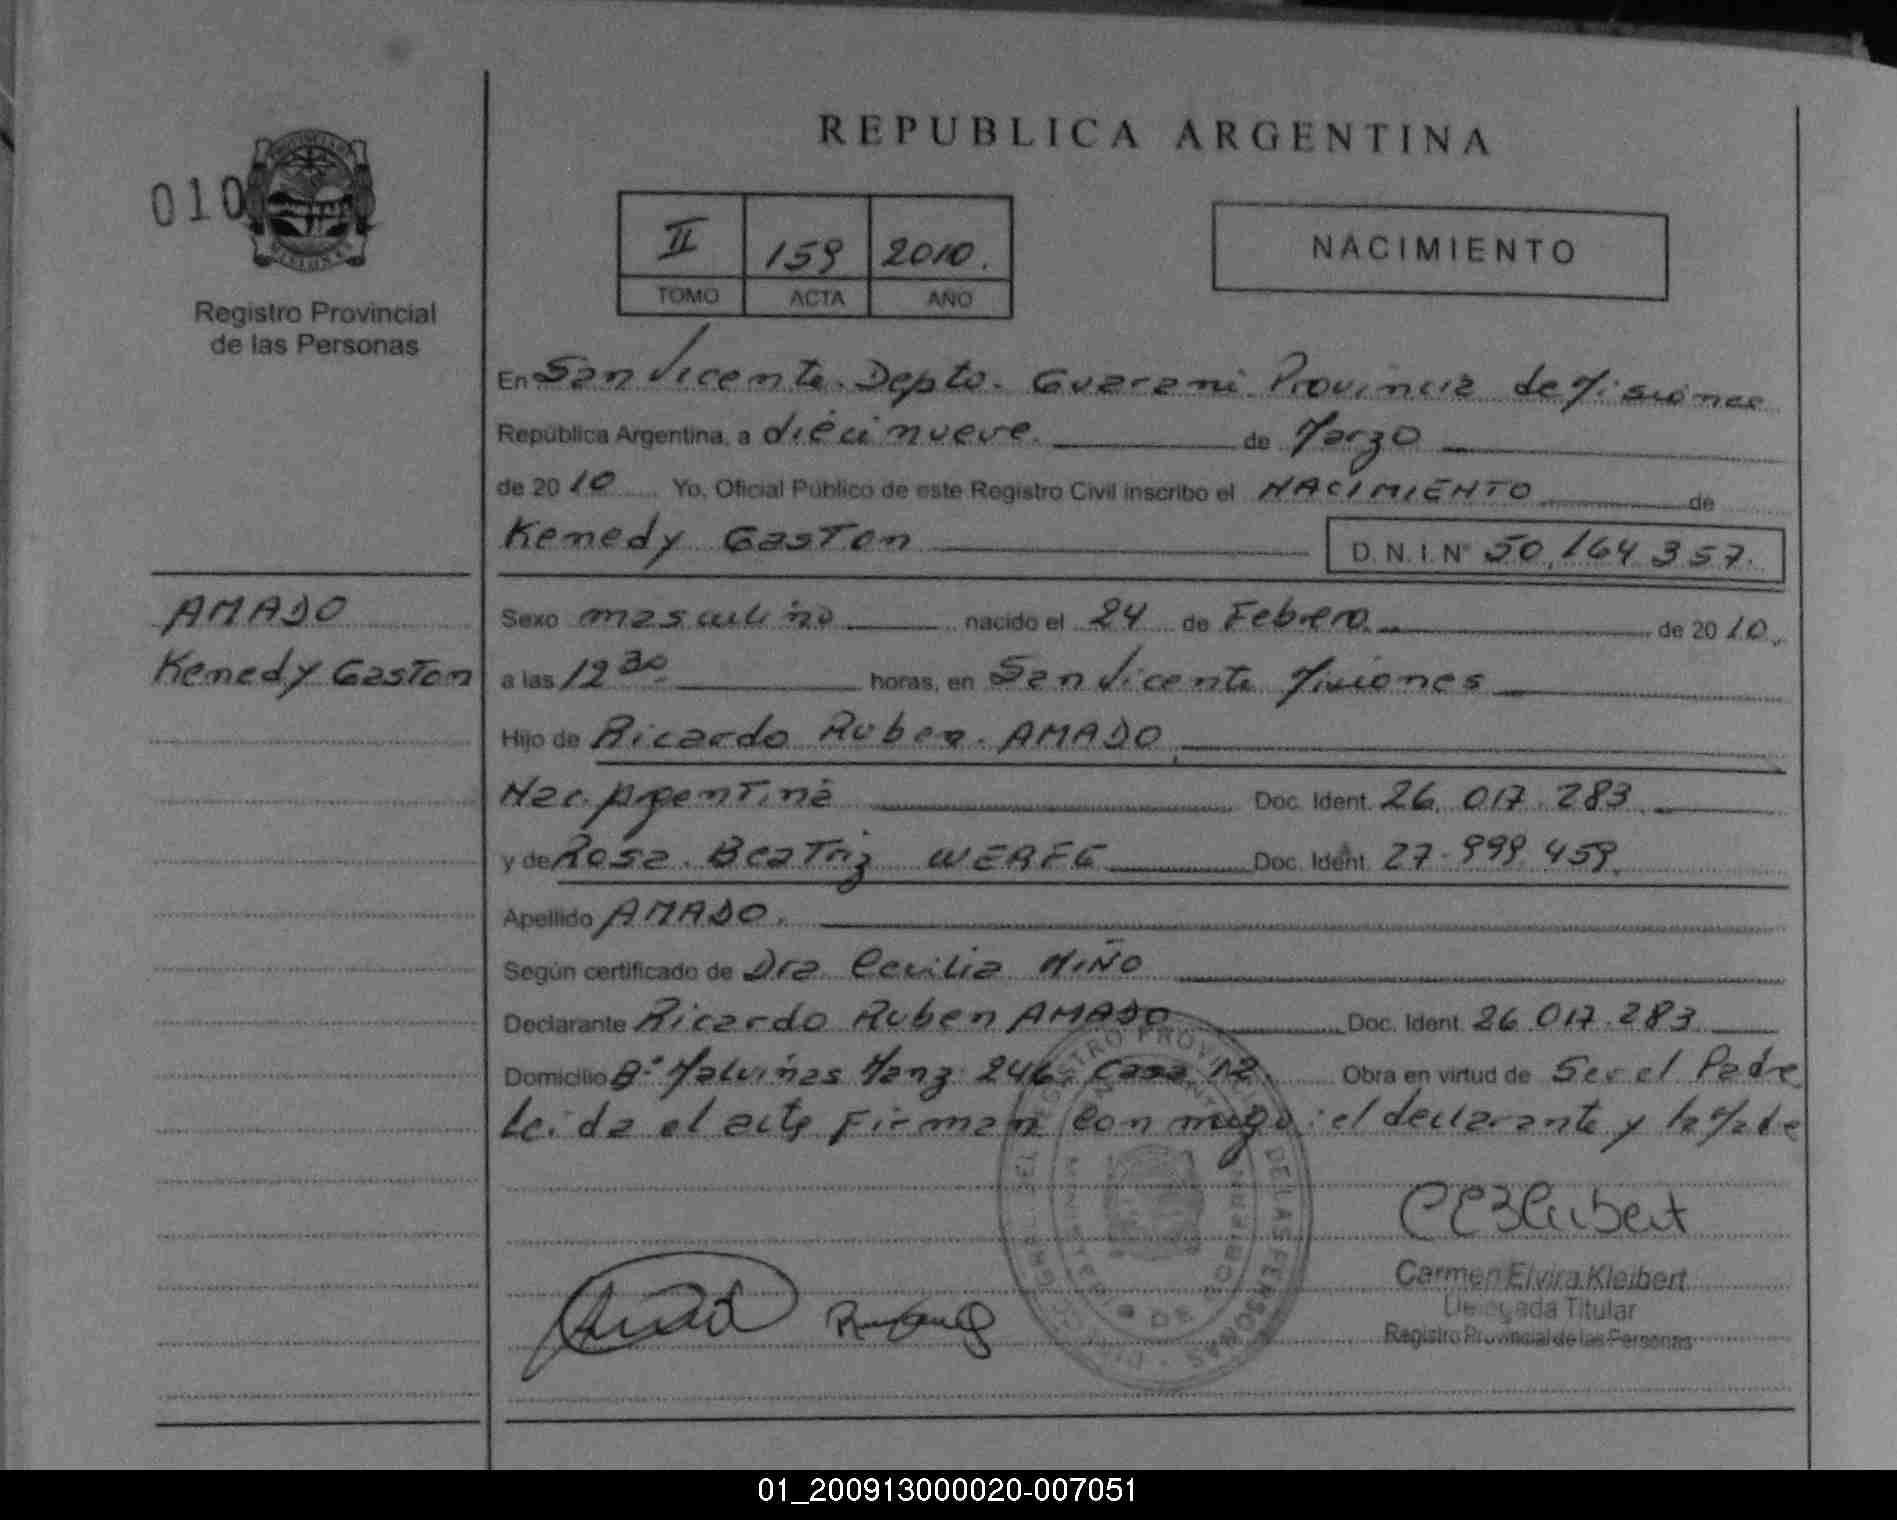 REPUBLICA ARGENTINA
010
II 159 2010.
TOMO ACTA AÑO
NACIMIENTO
Registro Provincial
de las Personas
En San Vicente. Depto. Guarani Provincia de Misiones
República Argentina, a diecinueve. de Marzo
de 2010 Yo, Oficial Público de este Registro Civil inscribo el NACIMIENTO de
Kemedy Gaston
D. N. I. N° 50.164.357.
AMADO
Kemedy Gaston
Sexo masculino nacido el 24 de Febrero de 2010.
a las 12 30. horas, en San Vicente Misiones
Hijo de Ricardo Ruben. AMADO
Nac. Argentina Doc. Ident. 26.017.283
y de Rosa. Beatriz Doc. Ident. 27.999.459.
Apellido AMADO.
Según certificado de Dra Cecilia NIÑO
Declarante Ricardo Ruben AMADO Doc. Ident. 26.017.283
Domicilio B° Malvinas Manz 246. Casa 12. Obra en virtud de Ser el Padre
Leida el acta Firman con migo: el declarante y la Madre
CEKleibert
Carmen Elvira Kleibert
Delegada Titular
Registro Provincial de las Personas
01_200913000020-007051